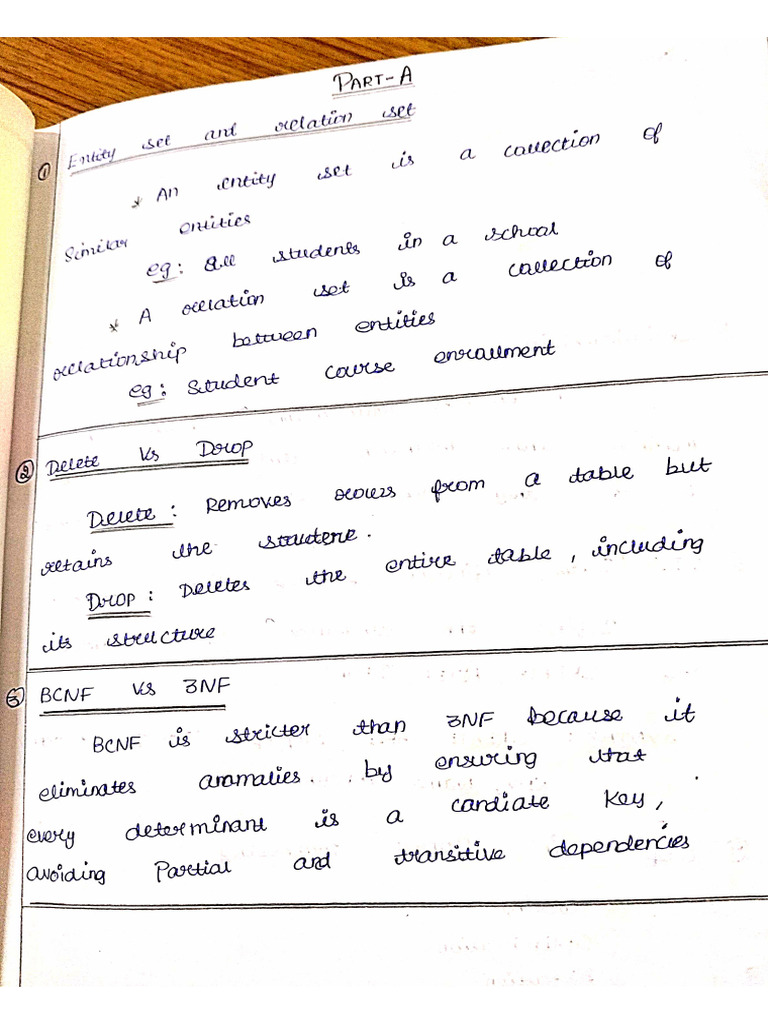 PART-A
① Entity set and relation set
* An entity set is a collection of
Similar entities
eg: All students in a school
* A relation set is a collection of
relationship between entities
eg: Student course enrollment
② Delete Vs Drop
Delete: Removes rows from a table but
retains the structure.
Drop: Deletes the entire table, including
its structure
③ BCNF Vs 3NF
BCNF is stricter than 3NF because it
eliminates anomalies by ensuring that
every determinant is a candiate key,
avoiding Partial and transitive dependencies